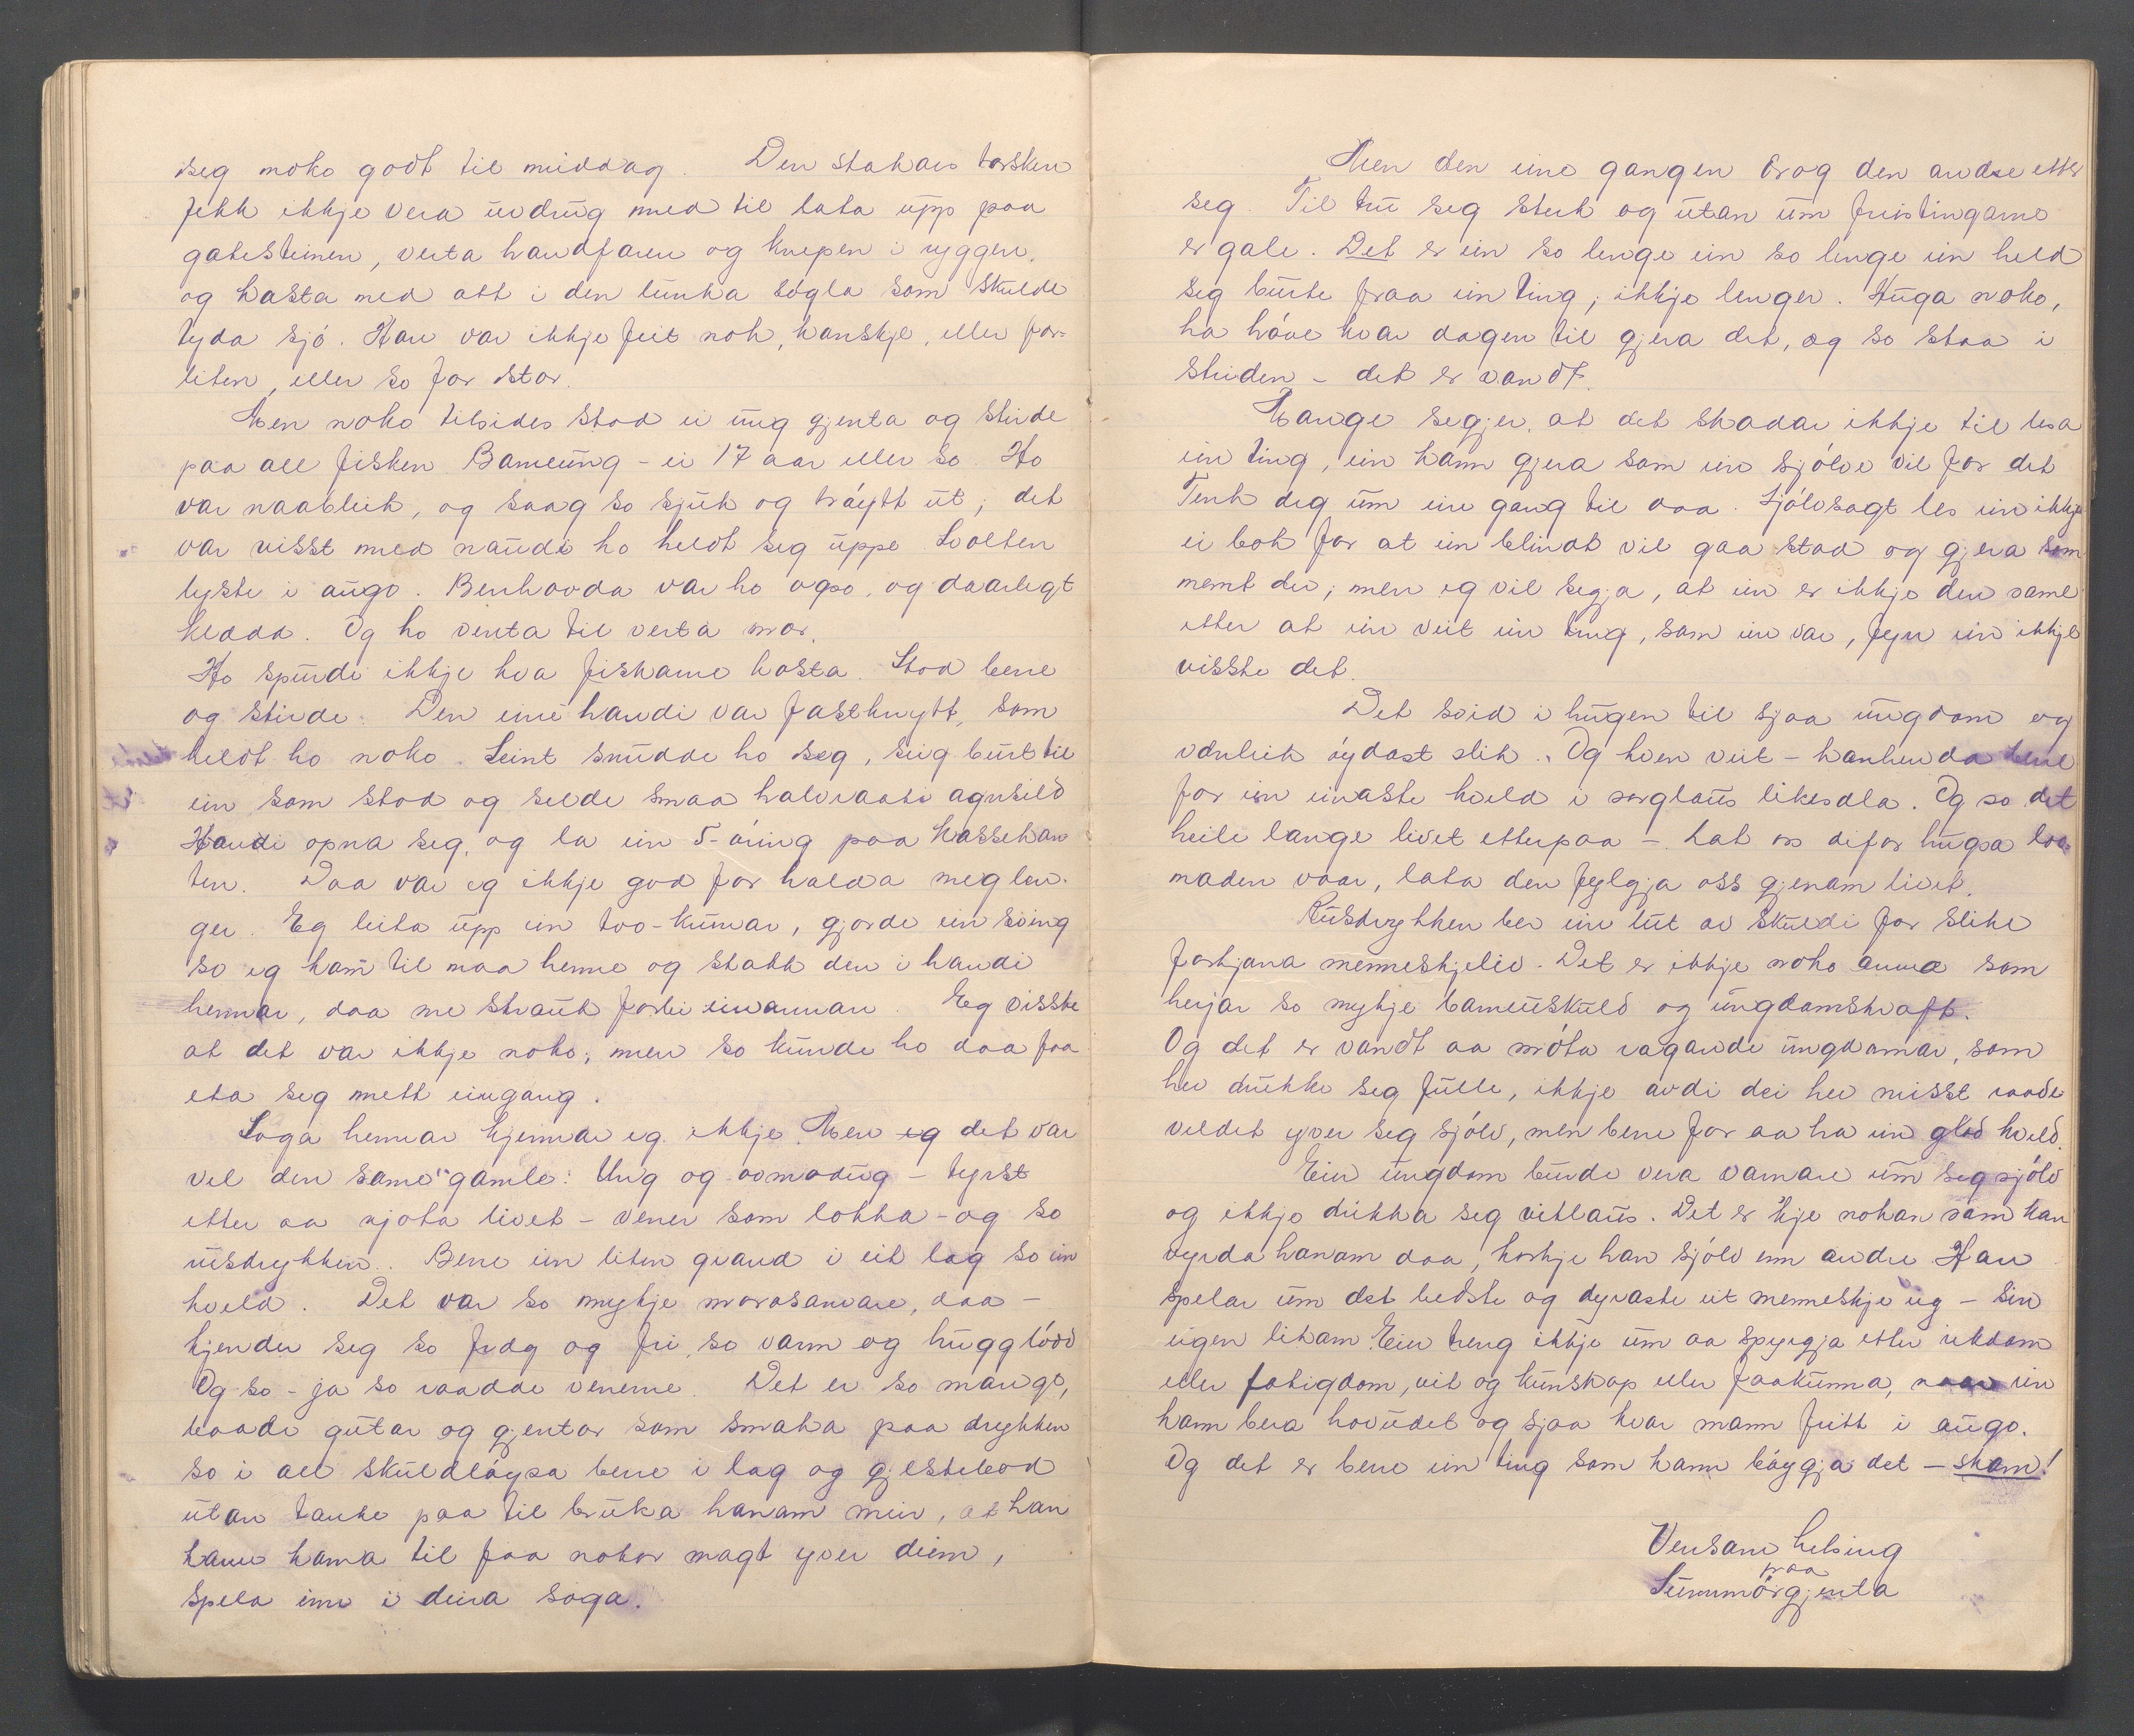 seg noko godt til middag. Den stakars torsken
fekk ikkje vera uvdrug med til lata upp paa
gatesteinen, verta handfaren og knepen i ryggen,
og kasta ned att i den lunka søgla som skulde
tyda sjó. Han var ikkje feit nok, kanskje, eller for
liten, eller so for stor.
Men noko tilsides stod ei ung gjenta og stirde
paa all fisken. Barneung - ei 17 aar eller so. Ho
var naableik, og saag so sjuk og tráytt ut; det
var visst med naudi ho heldt seg uppe. Svolten
lyste i augo. Berrhovda var ho ogso, og daarlegt
klædd. Og ho venta til verta mor.
Ho spurdi ikkje kva fiskarne kosta. Stod berre
og stirde. Den eine handi var fastknytt, som
heldt ho noko. Seint snudde ho seg, seig burt til
ein som stod og selde smaa halvraatne agnsild
Handi opna seg, og la ein 5-øring paa kassekan
ten. Daa var eg ikkje god for halda meg len-
ger. Eg leita upp ein too-kunar, gjorde ein sving
so eg kom til maa henne og statt den i handi
hennar, daa me strauk forbi einannan. Eg visste
at det var ikkje noko; men so kunde ho daa faa
eta seg mett eingang.
Soga hennar kjennar eg ikkje. Men eg det var
vel den same gamle: Ung og aamodug - tyrst
etter aa njota livet - vener som lokka - og so
rusdrykken. Berre ein liten grand i eit lag so ein
kveld. Det var so mykje morosamare, daa -
kjender seg so frdg og fri, so varm og hugglódd
Og so - ja so raadde venerne. Det er so mange,
baade gutar og gjentor som smaka paa drykken
so i all skuldláysa berre i lag og gjestebod
utan tanke paa til bruka hanam meir, at han
kann koma til faa nokor magt yver deim,
spela inn i deira soga.
Men den eine gangen drog den andre etter
seg. Til tru seg sterk og utan um freistingarne
er gale. Det er ein so lenge ein so lenge ein held
seg burte fraa ein ting; ikkje lenger. Huga noko,
ha høve kvar dagen til gjera det, og so staa i
striden - det er vandt.
Mange segjer, at det skadar ikkje til lesa
ein ting, ein kann gjera som ein sjólv vil for det
Tenk deg um ein gang til daa. Sjólvsagt les ein ikkje
ei bok for at ein blindt vil gaa stad og gjera som
nemt der; men eg vil segja, at ein er ikkje den same
etter at ein veit ein ting, som ein var, fyrr ein ikkje
visste det.
Det svid i hugen til sjaa ungdom og
vdnleik óydast slik. Og kven veit - kanhenda berre
for ein einaste kveld i sorglaus likesdla. Og so det
heile lange livet etterpaa -. Lat oss difor hugsa lov-
naden vaar, lata den fylgja oss gjenom livet.
Rusdrykken ber ein lut av skuldi for slike
forkjava menneskjeliv. Det er ikkje noko anna som
herjar so mykje barneuskuld og ungdomskraft.
Og det er vandt aa móta ragande ungdomar, som
hev drukke seg fulle, ikkje avdi dei hev misst raade
veldet yver seg sjólv, men berre for aa ha ein glad kveld.
Ein ungdom burde vera varnare um seg sjólv
og ikkje drikka seg vitlaus. Det er 'kje nokon som kan
vyrda hanom daa, korkje han sjólv enn andre. Han
spelar um det bedste og dyraste eit menneskje eig - sin
eigen likam. Ein treng ikkje um aa spyrgja etter rikdom
eller fatigdom, vit og kunskap eller faakunna, naar ein
kann bera hovudet og sjaa kvar mann fritt i augo.
Og det er berre ein ting som kann báygja det - skam!
Vensam helsing
fraa
Sunnmórgjenta